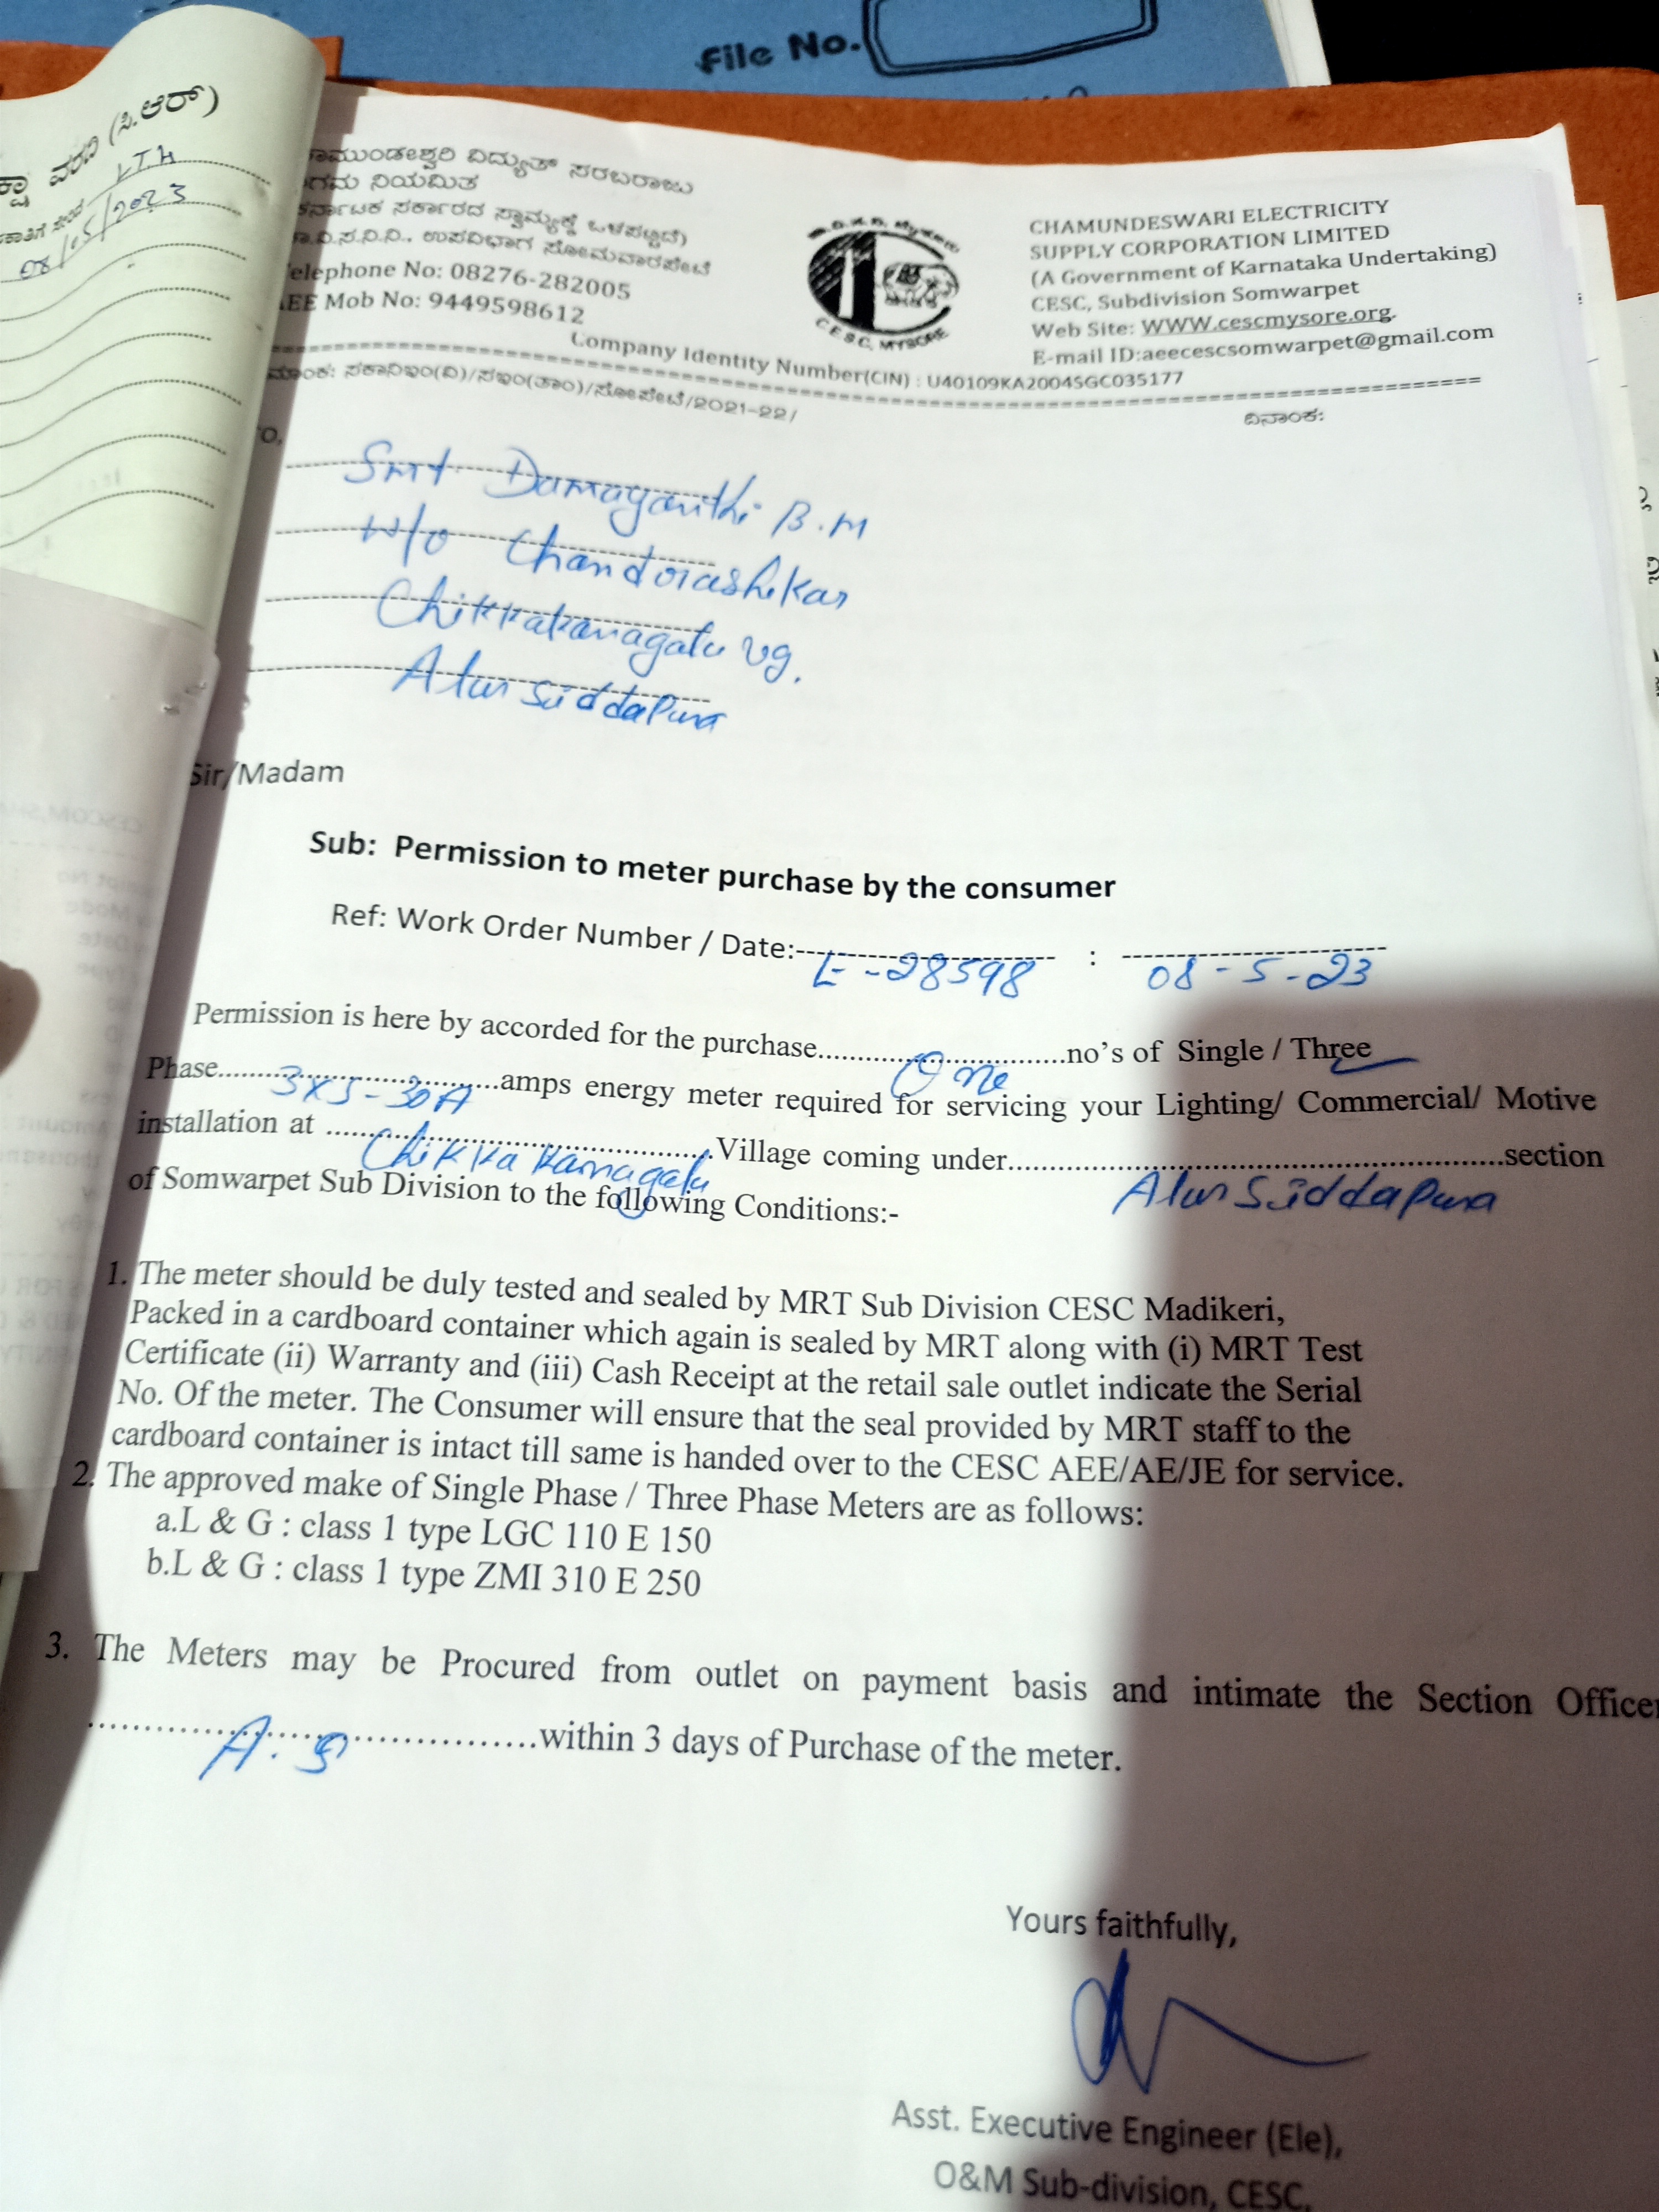 File No.
ವರದಿ (ಸಿ.ಆರ್)
LTH
08/05/2023
ಚಾಮುಂಡೇಶ್ವರಿ ವಿದ್ಯುತ್ ಸರಬರಾಜು
ನಿಗಮ ನಿಯಮಿತ
ಕರ್ನಾಟಕ ಸರ್ಕಾರದ ಸ್ವಾಮ್ಯಕ್ಕೆ ಒಳಪಟ್ಟಿದೆ)
ಚಾ.ವಿ.ಸ.ನಿ.ನಿ., ಉಪವಿಭಾಗ ಸೋಮವಾರಪೇಟೆ
elephone No: 08276-282005
AEE Mob No: 9449598612
C E S C, MYSORE
CHAMUNDESWARI ELECTRICITY
SUPPLY CORPORATION LIMITED
(A Government of Karnataka Undertaking)
CESC, Subdivision Somwarpet
Web Site: WWW.cescmysore.org.
E-mail ID:aeecescsomwarpet@gmail.com
Company Identity Number(CIN) : U40109KA2004SGC035177
/2021-22/
ದಿನಾಂಕ:
O,
Smt Damayanthi B.M
W/o Chandrashekar
Chikkakanagalu vg.
Alur Siddapura
Sir/Madam
Sub: Permission to meter purchase by the consumer
Ref: Work Order Number / Date: E-28598 : 08-5-23
Permission is here by accorded for the purchase One no's of Single / Three
Phase 3x5-30A amps energy meter required for servicing your Lighting/ Commercial/ Motive
installation at Chikka Kanagalu Village coming under Alur Siddapura section
of Somwarpet Sub Division to the following Conditions:-
1. The meter should be duly tested and sealed by MRT Sub Division CESC Madikeri,
Packed in a cardboard container which again is sealed by MRT along with (i) MRT Test
Certificate (ii) Warranty and (iii) Cash Receipt at the retail sale outlet indicate the Serial
No. Of the meter. The Consumer will ensure that the seal provided by MRT staff to the
cardboard container is intact till same is handed over to the CESC AEE/AE/JE for service.
2. The approved make of Single Phase / Three Phase Meters are as follows:
a.L & G : class 1 type LGC 110 E 150
b.L & G : class 1 type ZMI 310 E 250
3. The Meters may be Procured from outlet on payment basis and intimate the Section Officer
A.S within 3 days of Purchase of the meter.
Yours faithfully,
Asst. Executive Engineer (Ele),
O&M Sub-division, CESC,